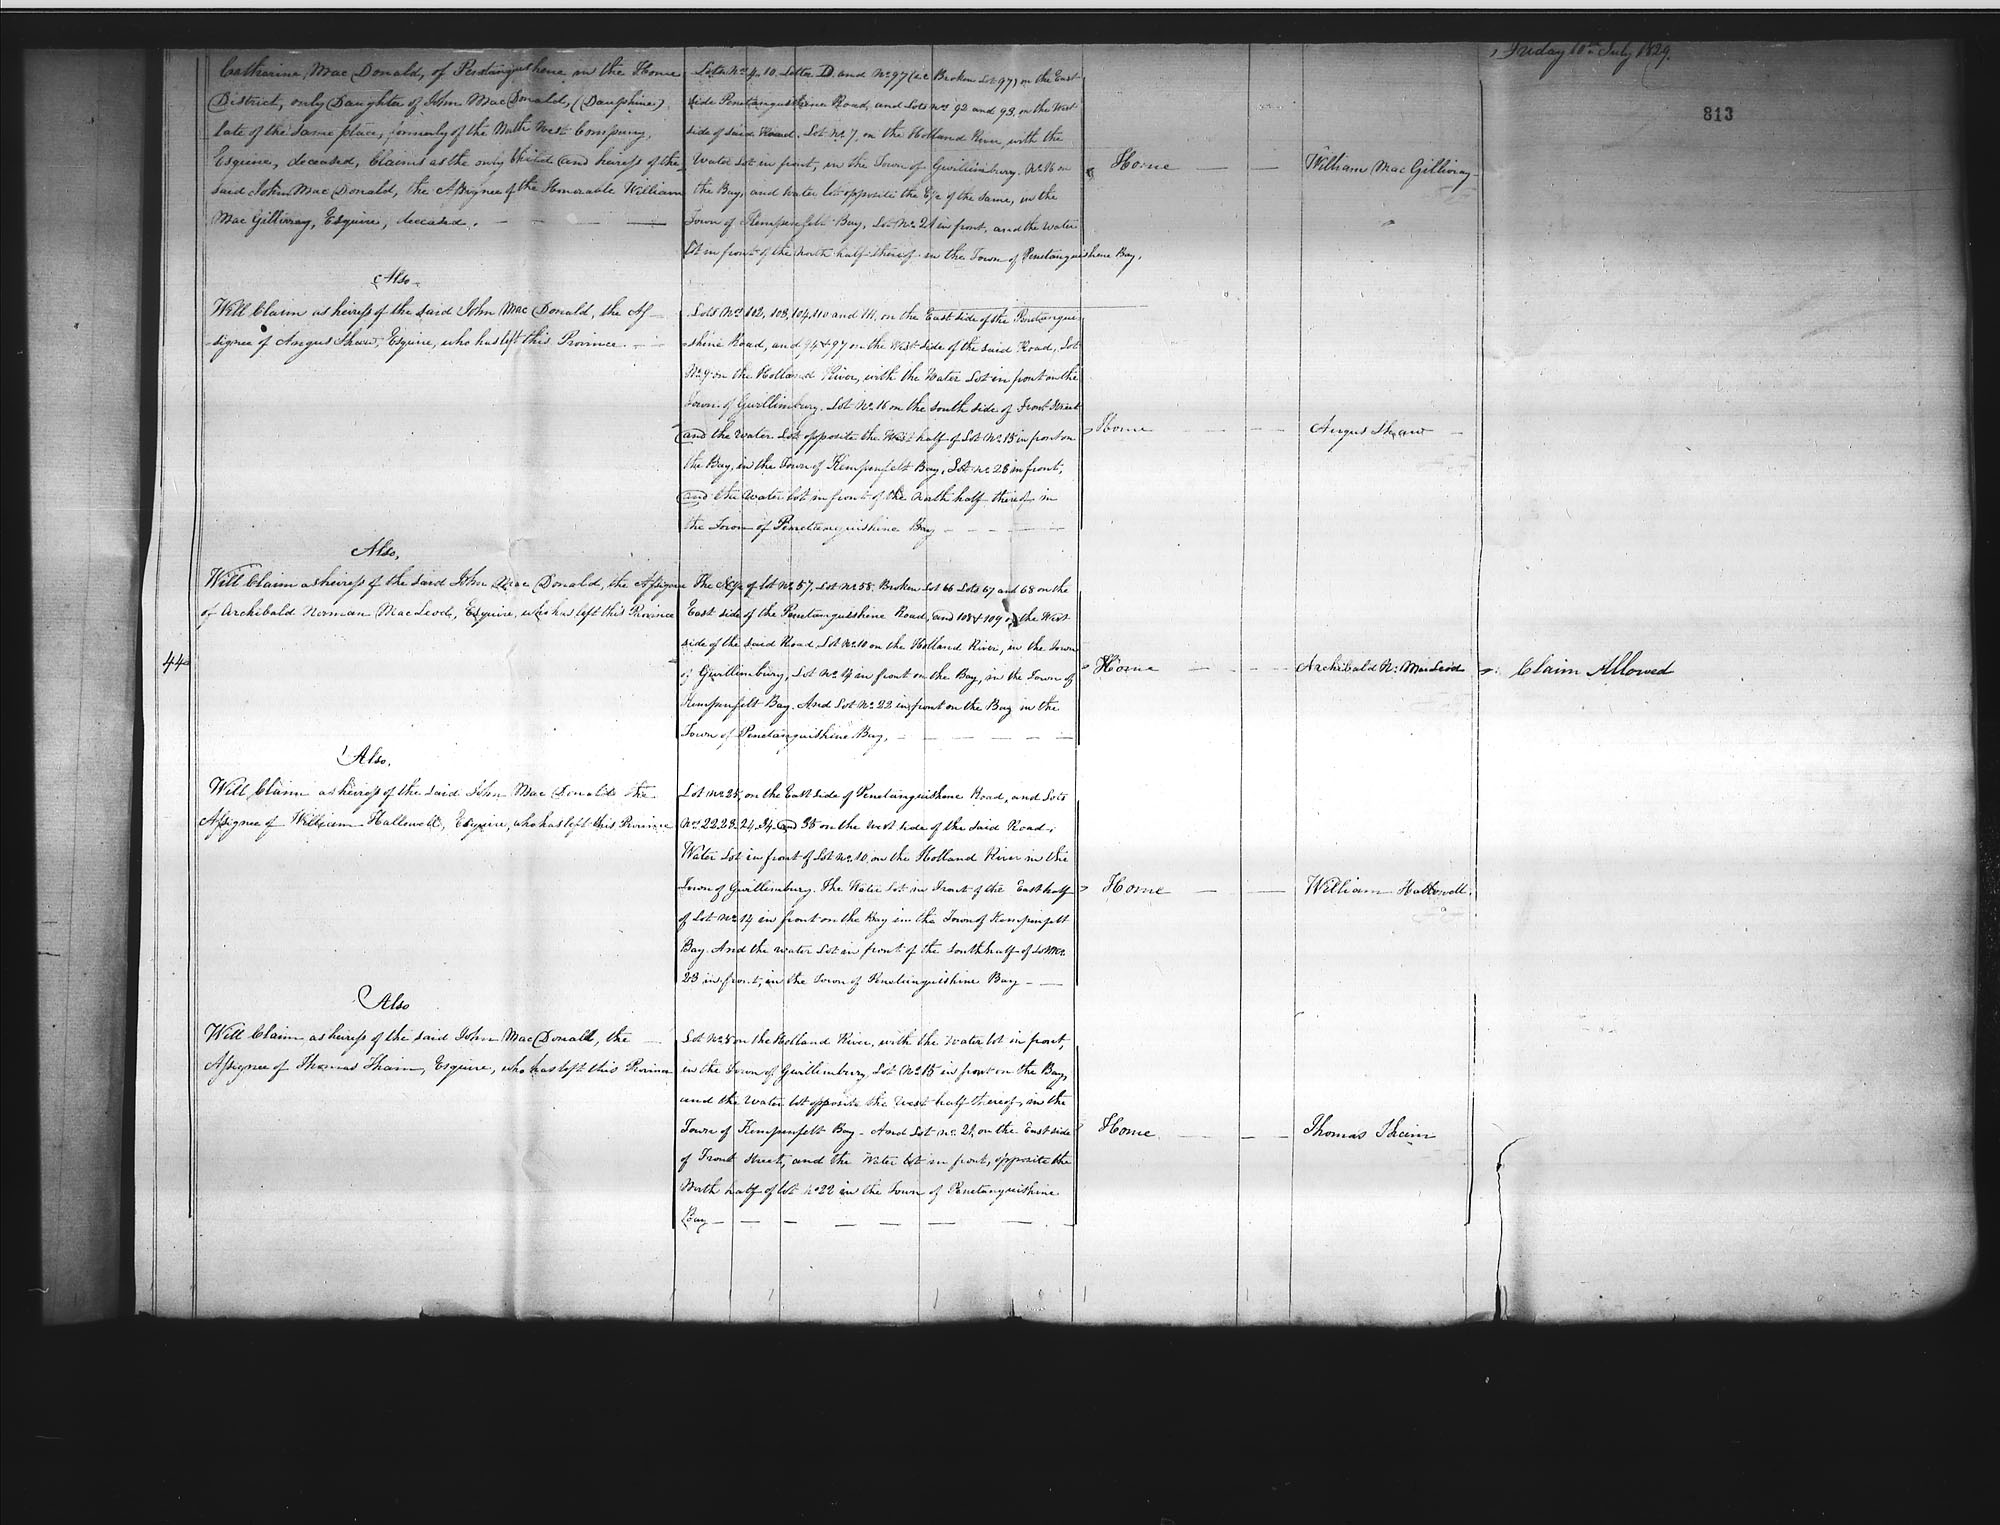 Friday 10th July 1829.
813
44
Catharine Mac Donald, of Penetanguishene in the Home
District, only Daughter of John Mac Donald, (Dauphine)
late of the same place, formerly of the North West Company,
Esquire, deceased, Claims as the only Child and heiress of the
said John Mac Donald, the Assignee of the Honorable William
Mac Gillivray, Esquire, deceased.
Lots Nos 4. 10. Letter D. and No 97 (i.e Broken Lot 97) on the East
side Penetanguishene Road, and Lots Nos 92 and 93, on the West
side of said Road. Lot No. 7. on the Holland River, with the
Water Lot in front, in the Town of Gwillimbury. No. 16 on
the Bay, and water lot opposite the E½ of the Same, in the
Town of Kempenfelt Bay, Lot No. 21 in front, and the water
Lot in front of the north half thereof in the Town of Penetanguishene Bay.
Home
William Mac Gillivray
Also
Will Claim as heiress of the said John Mac Donald, the As
signee of Angus Shaw, Esquire, who has left this Province.
Lots Nos 102, 103, 104, 110 and 111, on the East side of the Penetangui
shine Road, and 94 & 97 on the West side of the said Road, Lot
No. 9 on the Holland River, with the Water Lot in front on the
Town of Gwillimbury. Lot No. 16 on the South side of Front Street
and the water Lot opposite the West half of Lot No. 15 in front on
the Bay, in the Town of Kempenfelt Bay, Lot No. 23 in front,
and the Water lot in front of the North half thereof in
the Town of Penetanguishine Bay
Home
Angus Shaw
Also,
Will Claim as heiress of the said John Mac Donald, the Assignee
of Archibald Norman MacLeod, Esquire, who has left this Province
The N½ of lot No. 57, Lot No. 58. Broken Lot 66 Lots 67 and 68 on the
East side of the Penetanguishine Road, and 108 & 109 on the West
side of the said Road, Lot No. 10 on the Holland River, in the Town
of Gwillimbury, Lot No. 14 in front on the Bay, in the Town of
Kempenfelt Bay. And Lot No. 22 in front on the Bay in the
Town of Penetanguishine Bay,
Home
Archibald N. MacLeod
Claim Allowed
Also,
Will Claim as heiress of the said John Mac Donald the
Assignee of William Hallowell, Esquire, who has left this Province
Lot No 25, on the East side of Penetanguishene Road, and Lots
No. 22. 23. 24. 34. and 35 on the West side of the said Road.
Water Lot in front of Lot No. 10, on the Holland River in the
Town of Gwillimbury. The Water Lot in Front of the East half
of Lot No. 14 in front on the Bay in the Town of Kempenfelt
Bay. And the water Lot in front of the South half of Lot No.
23 in front, in the Town of Penetanguishine Bay
Home
William Hallowell.
Also
Will Claim as heiress of the said John Mac Donald, the
Assignee of Thomas Thain, Esquire, who has left this Province
Lot No. 8 on the Holland River, with the Water lot in front,
in the Town of Gwillimbury, Lot No. 15 in front on the Bay,
and the Water lot opposite the West half thereof, in the
Town of Kempenfelt Bay - And Lot No. 21, on the East side
of Front Street, and the Water lot in front, opposite the
North half of lot No 22 in the Town of Penetanguishine
Bay
Home
Thomas Thain